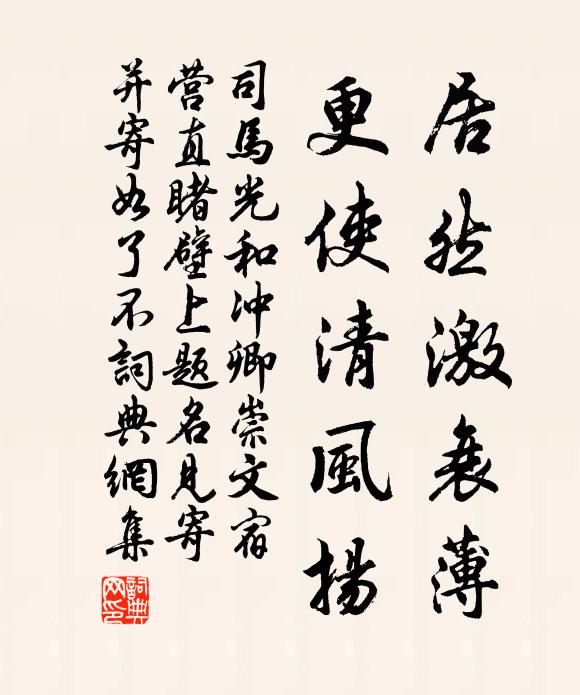 居然激衰薄
更使清風揚
司馬光和冲卿崇文宿
营直睹壁上題名見寄
并寄如了不詞典網集
詞典
网印